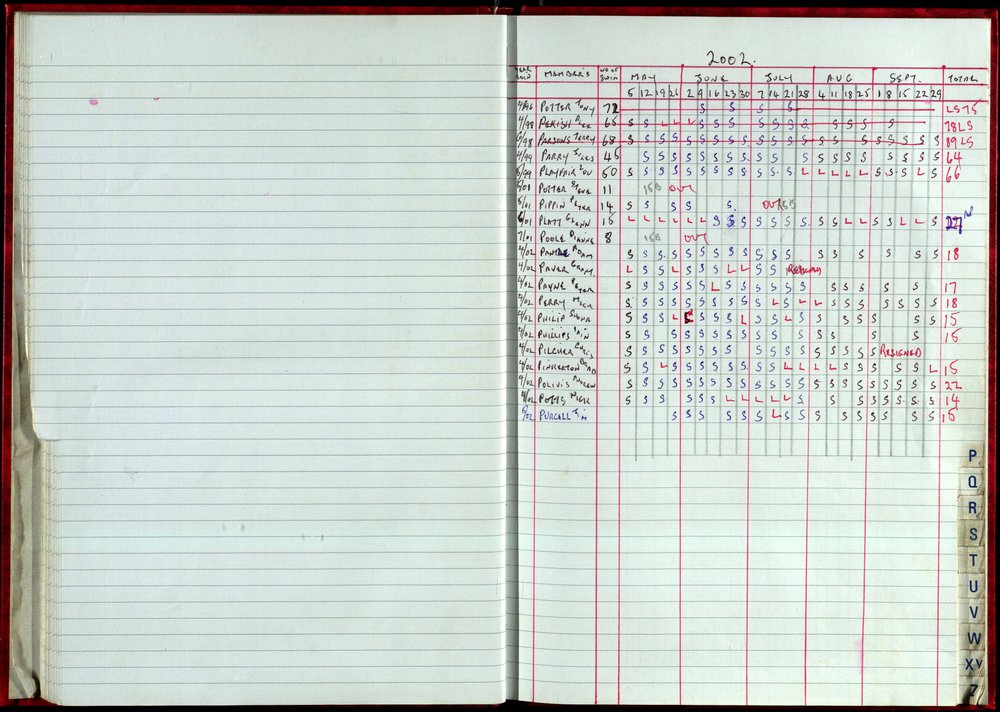 2002.
YEAR MEMBERS NO OF SWIM MAY JUNE JULY AUG SEPT. TOTAL
5 12 19 26 2 9 16 23 30 7 14 21 28 4 11 18 25 1 8 15 22 29
4/96 POTTER TONY 72 S S S S LS 75
4/98 65 S S L L L S S S S S S S S S S S 78 LS
5/98 PARSONS TERRY 68 S S S S S S S S S S S S S S S S S S S S S 89 LS
4/99 PARRY 46 S S S S S S S S S S S S S S S S S S 64
5/99 PLAYFAIR LOU 50 S S S S S S S S S S S S L L L L L S S S L S 66
POTTER STEVE 11 OUT
5/01 PIPPIN PETER 14 S S S S S. OUT
6/01 PLATT GLENN 15 L L L L L L S S S S S S S S S L L S S L L S 27
7/01 POOLE DIANNE 8 OUT
4/02 ADAM S S S S S S S S S S S S S S S S S 18
4/02 PAVER GRAH. L S S L S S S L L S S RESIGNED
4/02 PAYNE PETER S S S S S S L S S S S S S S S S S S 17
4/02 PERRY MICK S S S S S S S S S S L S L L S S S S S S S S 18
4/02 PHILIP S S S L S S S S L S S L S S S S S S S 15
4/02 PHILLIPS S S S S S S S S S S S S S S S S 15
4/02 PILCHER CHRIS S S S S S S S S S S S S S S S S RESIGNED
4/02 PINKERTON BRAD S S L S S S S S S S S L L L L S S S S L 15
4/02 ANDREW S S S S S S S S S S S S S S S S S S S S S S 22
4/02 POTTS NICK S S S S S S L L L L L S S S S S S S 14
5/02 PURCALL JIM S S S S S S S L S S S S S S S S 15
P
Q
R
S
T
U
V
W
XY
Z